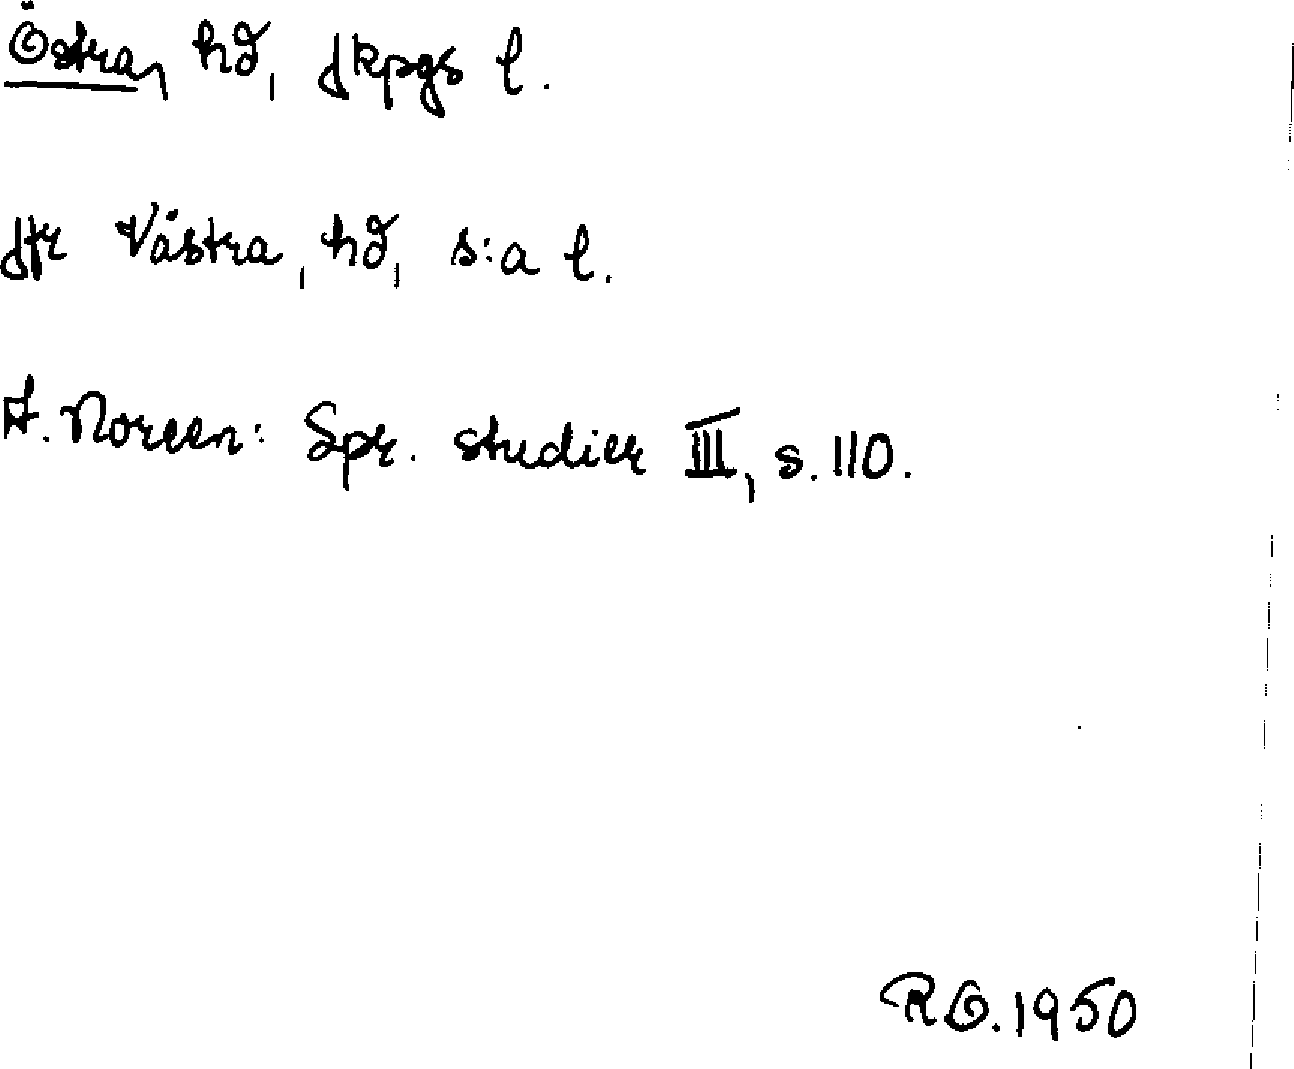 Östra, hd, Jkpgs l.
Jfr Västra, hd, s:a l.
A. Noreen: Spr. studier III, s. 110.
R.O. 1950